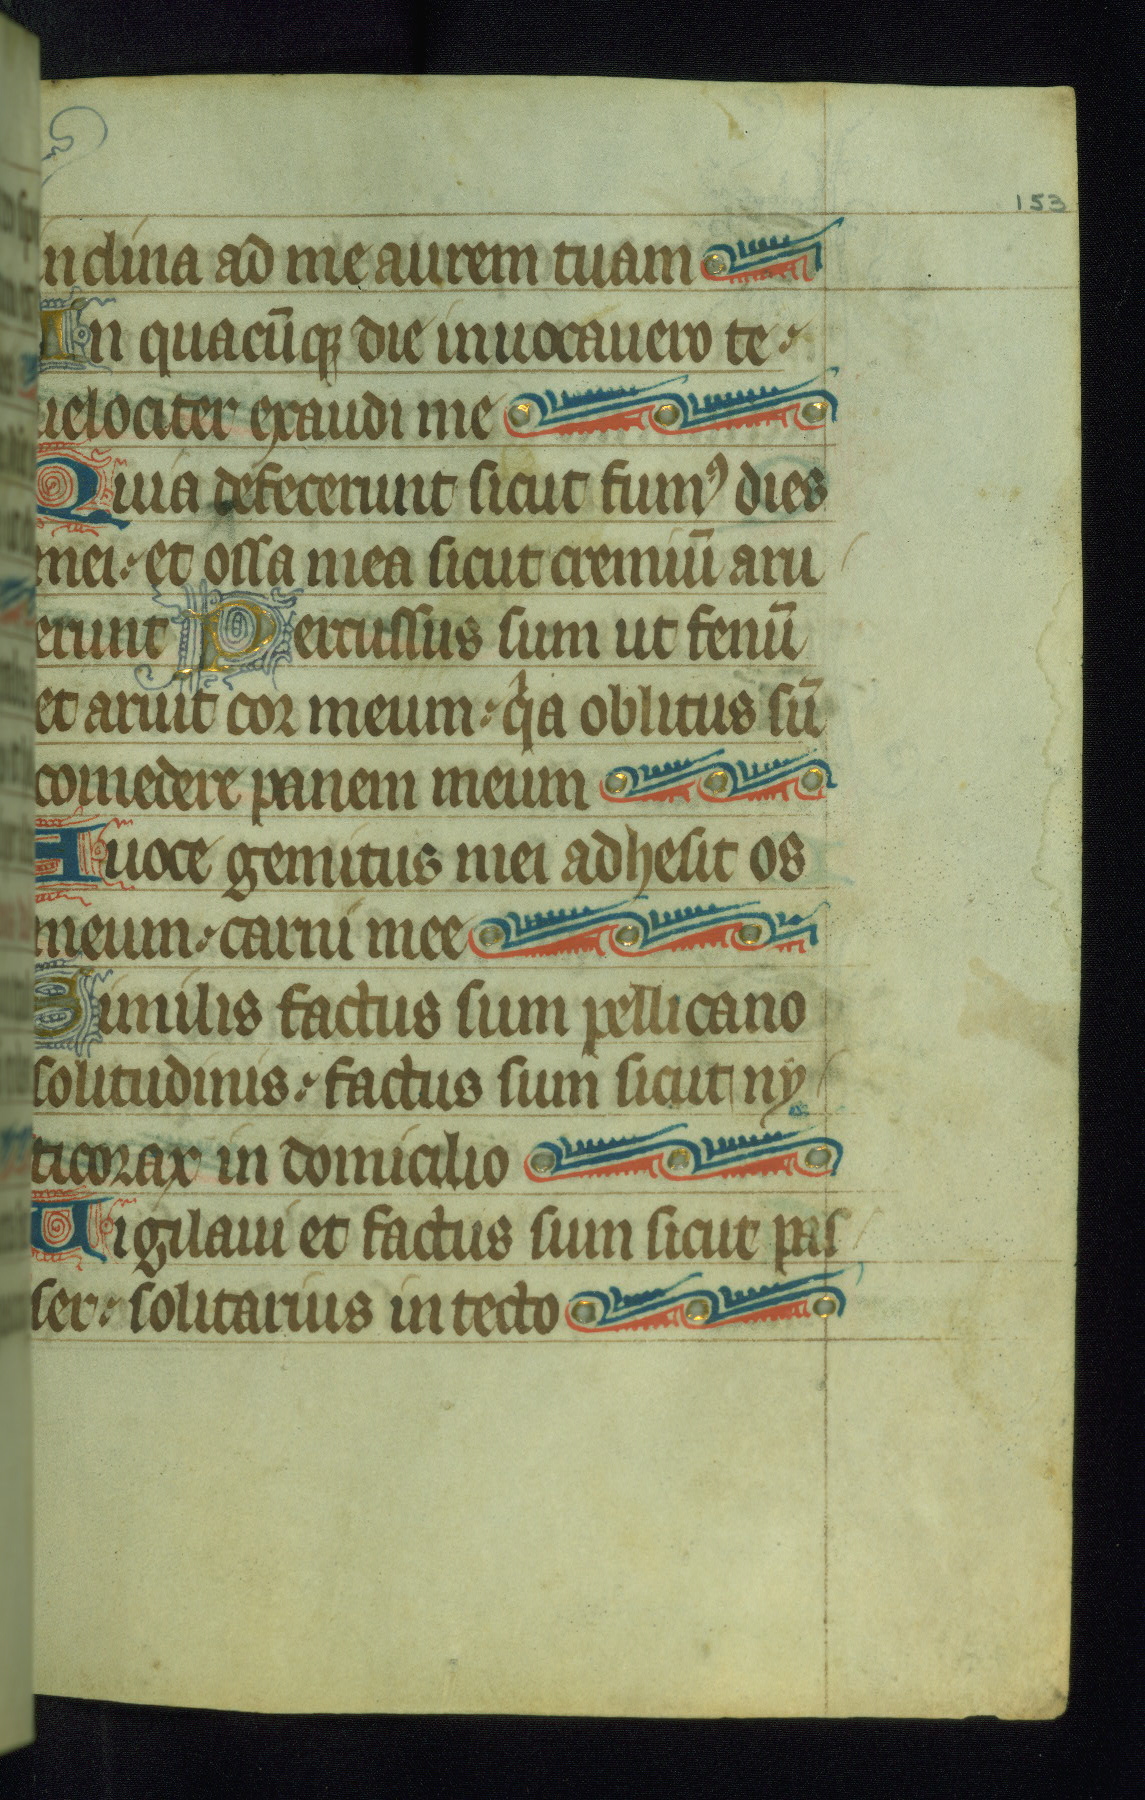 153
nclina ad me aurem tuam
In quacūqꝫ die inuocauero te ⹎
uelociter exaudi me
Quia defecerunt sicut fumꝰ dies
mei ⹎ et ossa mea sicut cremiū aru
erunt Percussus sum ut fenū
et aruit cor meum ⹎ qͥa oblitus sū
comedere panem meum
A uoce gemitus mei adhesit os
meum ⹎ carni mee
Similis factus sum pellicano
solitudinis ⹎ factus sum sicut ny
ticorax in domicilio
Uigilaui et factus sum sicut pas
ser ⹎ solitarius in tecto